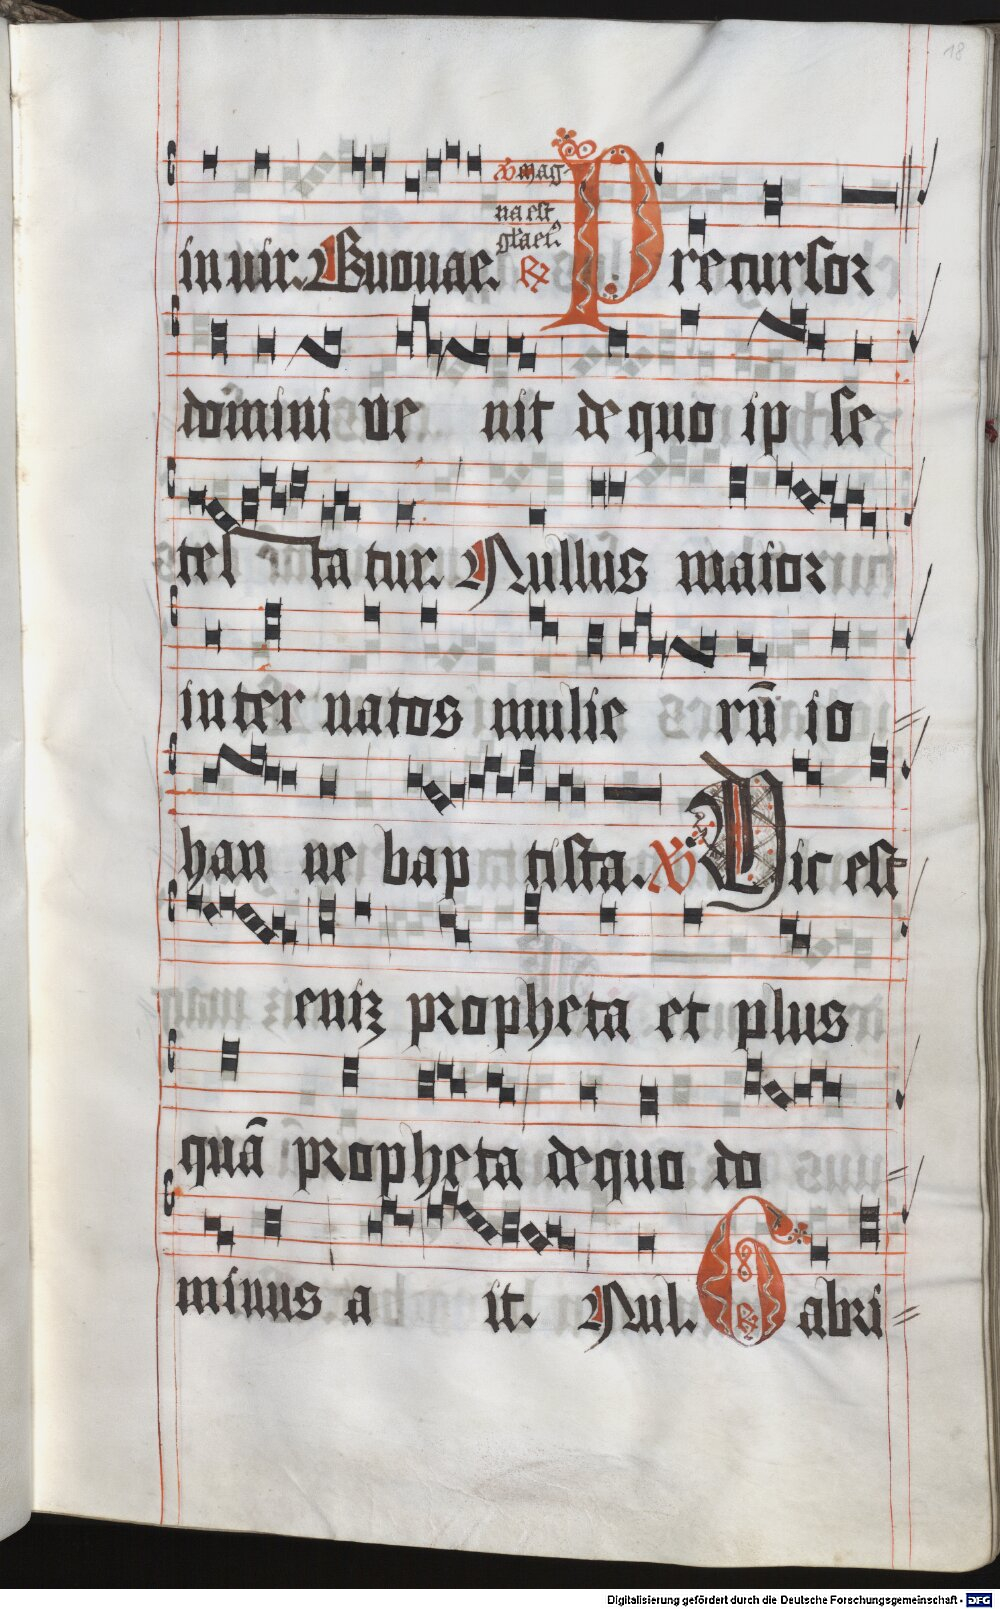 18
℣ mag-
na est
gła eiꝰ
in uir. Euouae. ℟ Precursor
domini ve nit de quo ip se
tes ta tur. Nullus maior
inter natos mulie rū io
han ne bap tista. ℣ Hic est
eniz propheta et plus
quā propheta de quo do
minus a it. Nul. ℟ Gabri
Digitalisierung gefördert durch die Deutsche Forschungsgemeinschaft - DFG